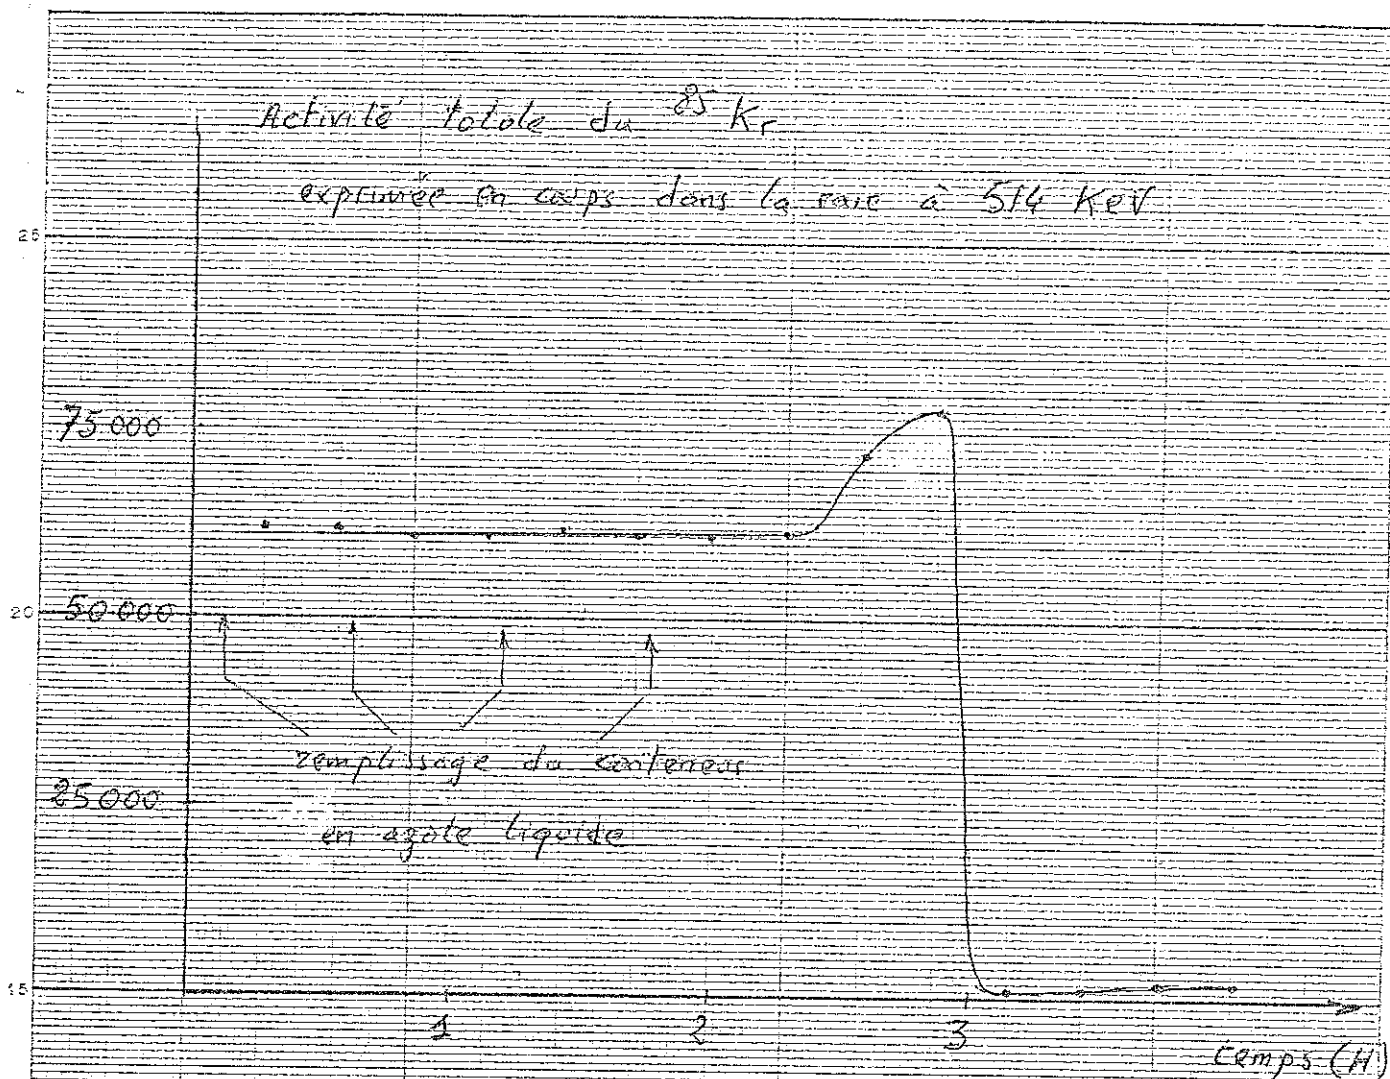 Activité totale du 85 Kr
exprimée en coups dans la raie à 514 KeV
25
75 000
20
50 000
remplissage du conteneur
25 000
en azote liquide
15
1
2
3
temps (H)